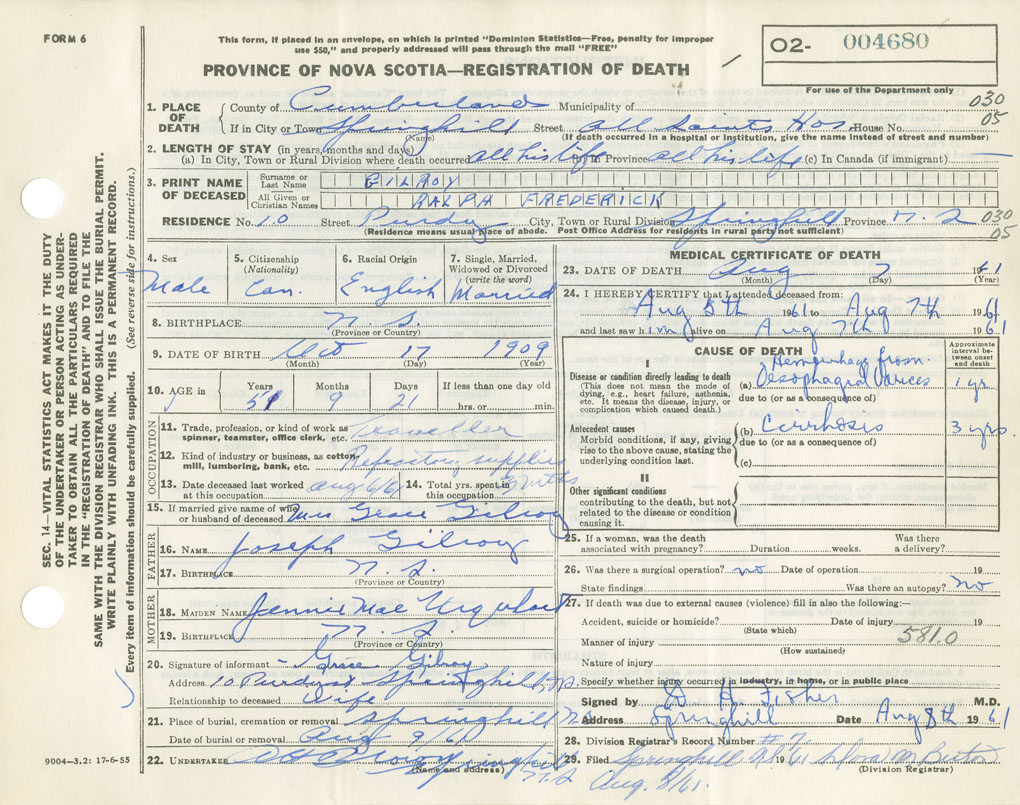 FORM 6
This form, if placed in an envelope, on which is printed "Dominion Statistics—Free, penalty for improper
use $50," and properly addressed will pass through the mail "FREE"
O2- 004680
PROVINCE OF NOVA SCOTIA—REGISTRATION OF DEATH
For use of the Department only
030
05
1. PLACE OF DEATH
County of Cumberland Municipality of
If in City or Town Springhill Street All Saints Hos House No.
(Name) (If death occurred in a hospital or institution, give the name instead of street and number)
2. LENGTH OF STAY (in years, months and days)
(a) In City, Town or Rural Division where death occurred all his life (b) In Province all his life (c) In Canada (if immigrant) —
3. PRINT NAME OF DECEASED
Surname or Last Name GILROY
All Given or Christian Names RALPH FREDERICK
RESIDENCE No. 10 Street Purdy City, Town or Rural Division Springhill Province N. S 030
05
(Residence means usual place of abode. Post Office Address for residents in rural parts not sufficient)
4. Sex
Male
5. Citizenship
(Nationality)
Can.
6. Racial Origin
English
7. Single, Married,
Widowed or Divorced
(write the word)
Married
8. BIRTHPLACE N. S.
(Province or Country)
9. DATE OF BIRTH Oct 17 1909
(Month) (Day) (Year)
10. AGE in
Years Months Days If less than one day old
51 9 21 hrs. or min.
OCCUPATION
11. Trade, profession, or kind of work as
spinner, teamster, office clerk, etc. Traveller
12. Kind of industry or business, as cotton-
mill, lumbering, bank, etc. Refractory supplies
13. Date deceased last worked
at this occupation Aug 6/61
14. Total yrs. spent in
this occupation
15. If married give name of wife
or husband of deceased Mrs Grace Gilroy
FATHER
16. NAME Joseph Gilroy
17. BIRTHPLACE N. S.
(Province or Country)
MOTHER
18. MAIDEN NAME Jennie Mae Urquhart
19. BIRTHPLACE N. S.
(Province or Country)
20. Signature of informant - Grace Gilroy
Address 10 Purdy St Springhill N.S.
Relationship to deceased Wife
21. Place of burial, cremation or removal Springhill N.S
Date of burial or removal Aug 9/61
22. UNDERTAKER Springhill
(Name and address)
N. S
MEDICAL CERTIFICATE OF DEATH
23. DATE OF DEATH Aug 7 1961
(Month) (Day) (Year)
24. I HEREBY CERTIFY that I attended deceased from:
Aug 5th 1961 to Aug 7th 1961
and last saw him alive on Aug 7th 1961
CAUSE OF DEATH
Approximate
interval be-
tween onset
and death
I
Disease or condition directly leading to death
(This does not mean the mode of
dying, e.g., heart failure, asthenia,
etc. It means the disease, injury, or
complication which caused death.)
Hemorrhage from
(a) Oesophageal Varices 1 yr.
due to (or as a consequence of)
Antecedent causes
Morbid conditions, if any, giving
rise to the above cause, stating the
underlying condition last.
(b) Cirrhosis 3 yrs.
due to (or as a consequence of)
(c)
II
Other significant conditions
contributing to the death, but not
related to the disease or condition
causing it.
25. If a woman, was the death
associated with pregnancy? Duration weeks. Was there
a delivery?
26. Was there a surgical operation? no Date of operation 19
State findings Was there an autopsy? no
27. If death was due to external causes (violence) fill in also the following:—
Accident, suicide or homicide? Date of injury 19
(State which)
Manner of injury 581.0
(How sustained)
Nature of injury
Specify whether injury occurred in industry, in home, or in public place
Signed by D. H. Fisher M.D.
Address Springhill Date Aug 8th 1961
28. Division Registrar's Record Number # 7
29. Filed Springhill N.S.
Aug. 8/61.
(Division Registrar)
SEC. 14—VITAL STATISTICS ACT MAKES IT THE DUTY
OF THE UNDERTAKER OR PERSON ACTING AS UNDER-
TAKER TO OBTAIN ALL THE PARTICULARS REQUIRED
IN THE "REGISTRATION OF DEATH" AND TO FILE THE
SAME WITH THE DIVISION REGISTRAR WHO SHALL ISSUE THE BURIAL PERMIT.
WRITE PLAINLY WITH UNFADING INK. THIS IS A PERMANENT RECORD.
Every item of information should be carefully supplied. (See reverse side for instructions.)
9004—3.2: 17-6-55